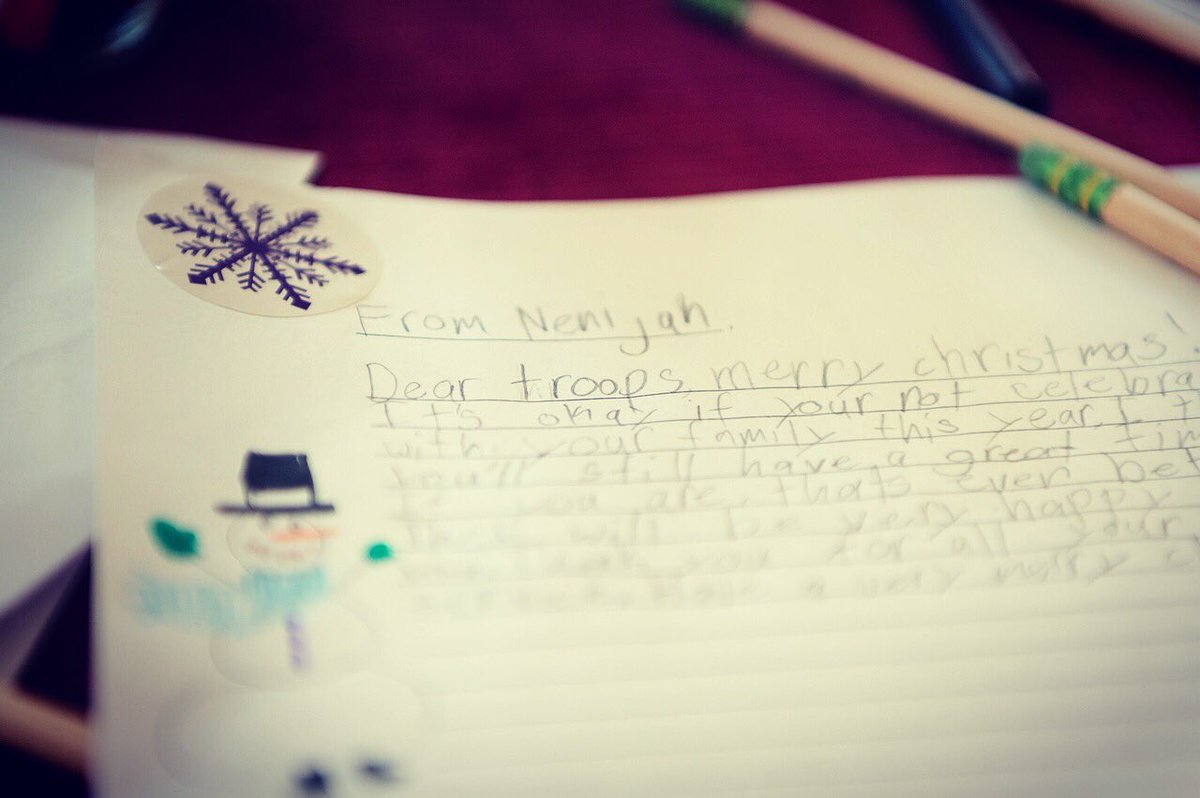 From Nenijah.
Dear troops, merry christmas!
It's okay if your not celebra
with your family this year. I t
you'll still have a great tim
If you are, thats even bet
They will be very happy
you for all your
Have a very merry c